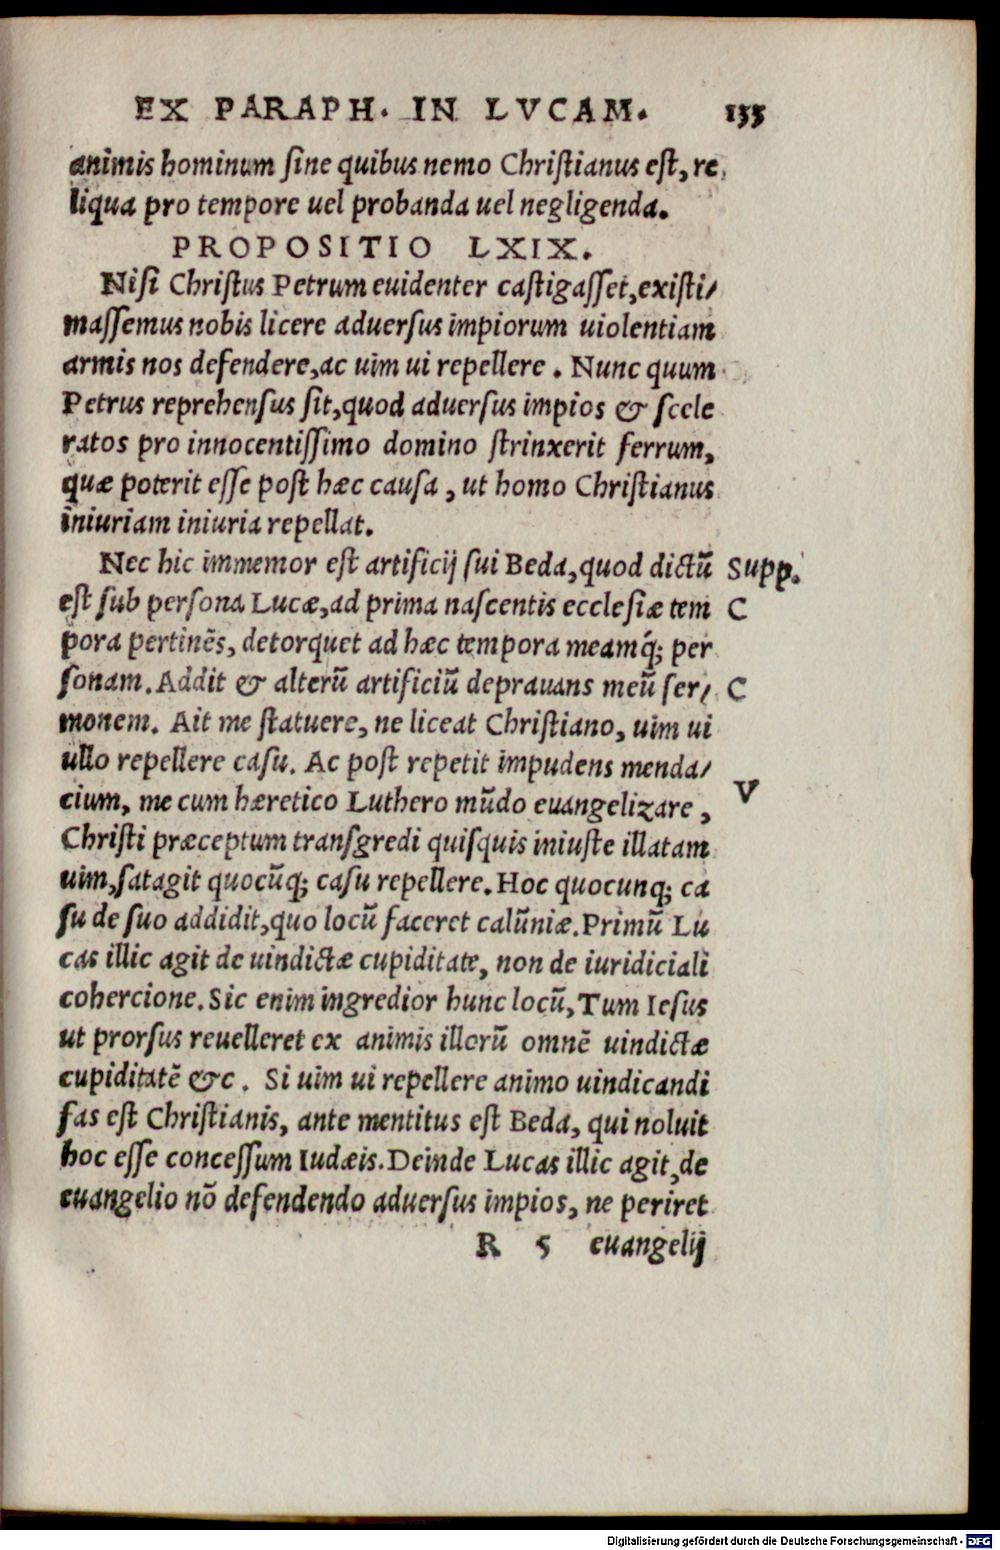 EX PARAPH. IN LVCAM. 133
animis hominum sine quibus nemo Christianus est, re
liqua pro tempore uel probanda uel negligenda.
PROPOSITIO LXIX.
Nisi Christus Petrum euidenter castigasset, existi/
massemus nobis licere aduersus impiorum uiolentiam
armis nos defendere, ac uim ui repellere. Nunc quum
Petrus reprehensus sit, quod aduersus impios & scele
ratos pro innocentissimo domino strinxerit ferrum,
quæ poterit esse post hæc causa, ut homo Christianus
iniuriam iniuria repellat.
Nec hic immemor est artificij sui Beda, quod dictũ Supp.
est sub persona Lucæ, ad prima nascentis ecclesiæ tem C
pora pertinẽs, detorquet ad hæc tempora meamq́; per
sonam. Addit & alterũ artificiũ deprauans meũ ser/ C
monem. Ait me statuere, ne liceat Christiano, uim ui
ullo repellere casu. Ac post repetit impudens menda/
cium, me cum hæretico Luthero mũdo euangelizare, V
Christi præceptum transgredi quisquis iniuste illatam
uim, satagit quocũq; casu repellere. Hoc quocunq; ca
su de suo addidit, quo locũ faceret calũniæ. Primũ Lu
cas illic agit de uindictæ cupiditate, non de iuridiciali
cohercione. Sic enim ingredior hunc locũ, Tum Iesus
ut prorsus reuelleret ex animis illorũ omnẽ uindictæ
cupiditatẽ &c. Si uim ui repellere animo uindicandi
fas est Christianis, ante mentitus est Beda, qui noluit
hoc esse concessum Iudæis. Deinde Lucas illic agit, de
euangelio nõ defendendo aduersus impios, ne periret
R 5 euangelij
Digitalisierung gefördert durch die Deutsche Forschungsgemeinschaft - DFG